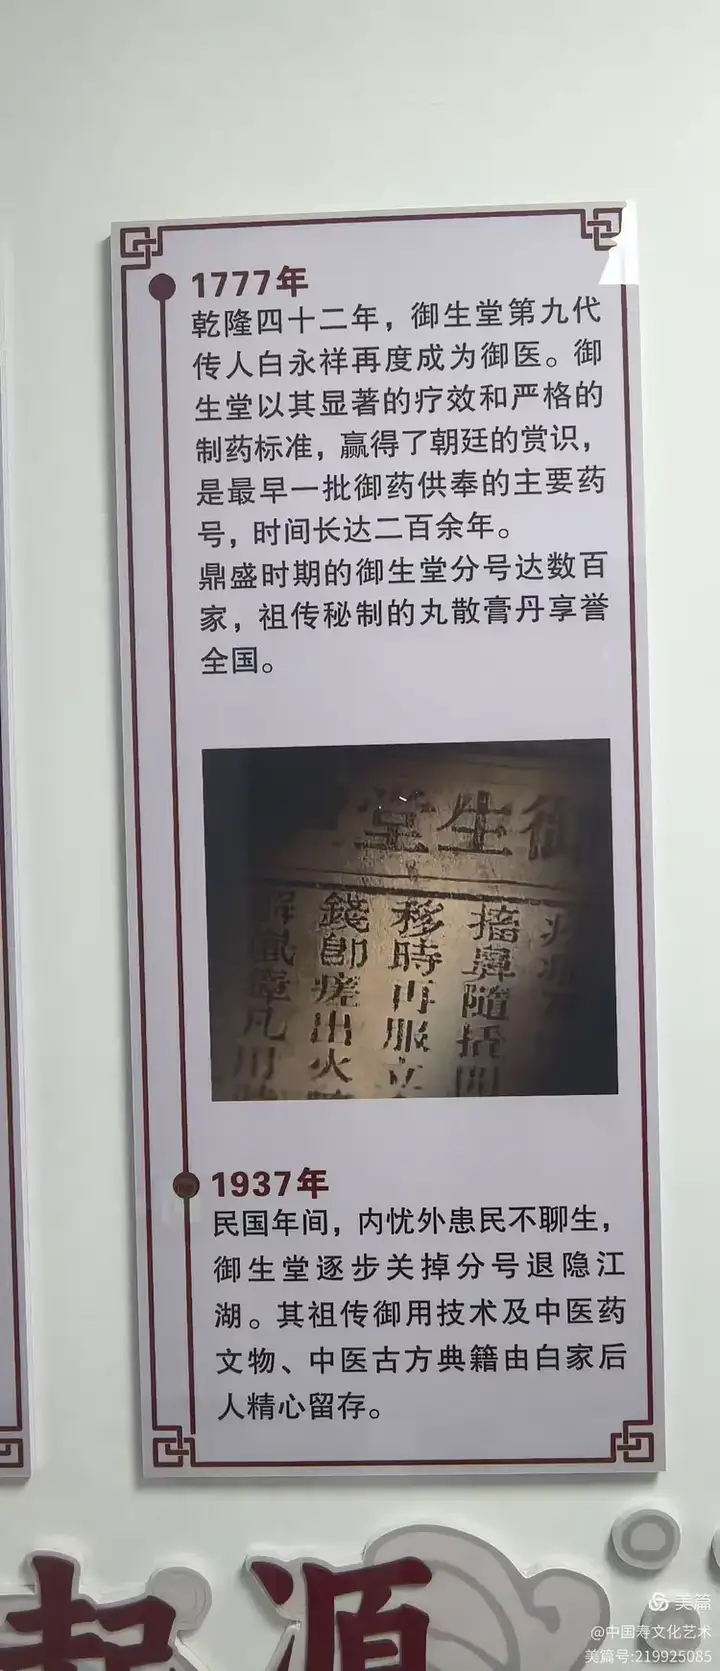 1777年
乾隆四十二年，御生堂第九代
传人白永祥再度成为御医。御
生堂以其显著的疗效和严格的
制药标准，赢得了朝廷的赏识，
是最早一批御药供奉的主要药
号，时间长达二百余年。
鼎盛时期的御生堂分号达数百
家，祖传秘制的丸散膏丹享誉
全国。
御生堂
搐鼻隨搐四
移時再服立
錢卽瘥出火
凡用
1937年
民国年间，内忧外患民不聊生，
御生堂逐步关掉分号退隐江
湖。其祖传御用技术及中医药
文物、中医古方典籍由白家后
人精心留存。
起源
美篇
@中国寿文化艺术
美篇号:219925085